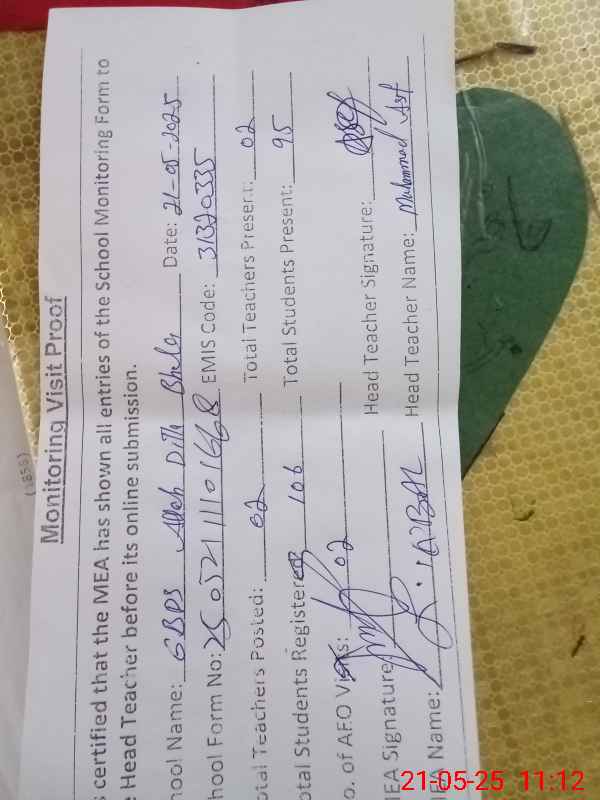 (853)
Monitoring Visit Proof
s certified that the MEA has shown all entries of the School Monitoring Form to
e Head Teacher before its online submission.
hool Name: GBPS Allah Ditta Bhela Date: 21-05-2025
hool Form No: 2505211111016668 EMIS Code: 31320335
otal Teachers Posted: 02 Total Teachers Present: 02
otal Students Registered 106 Total Students Present: 95
o. of AEO Visits: 02
MEA Signature Head Teacher Signature:
Name: IQBAL Head Teacher Name: Muhammad Asif
21-05-25 11:12